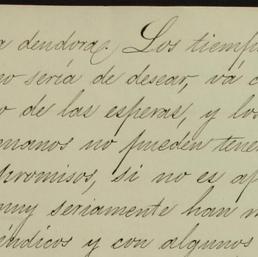 a dendora. Los tiemp
no sería de desear, vá c
o de las esperas, y los
manos no pueden tene
promisos, si no es ap
muy seriamente han
éndicos y con algunos